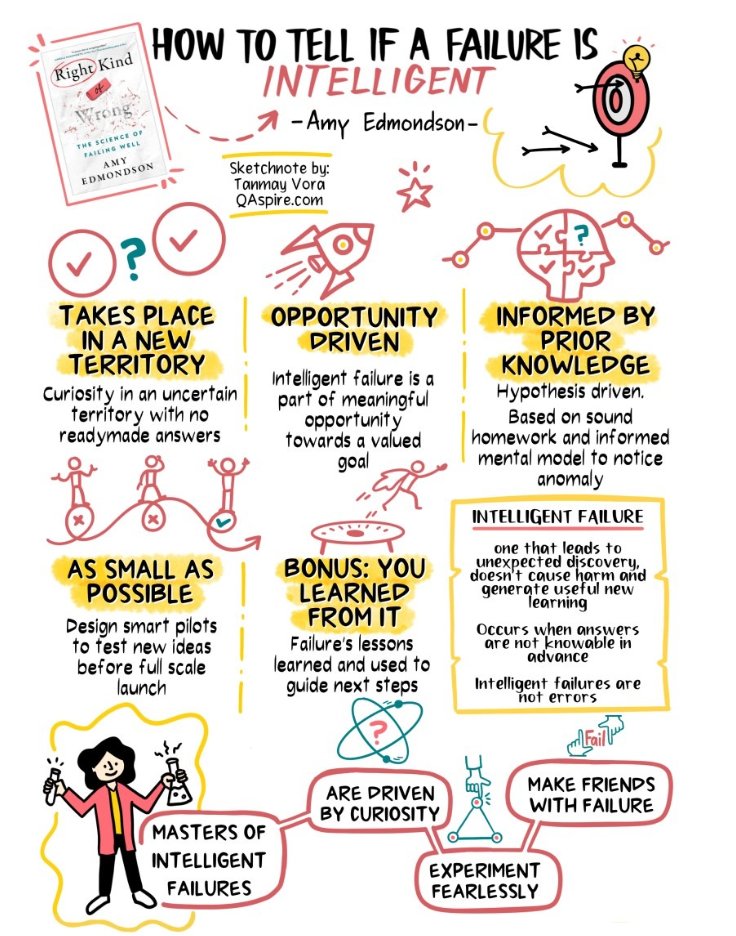 HOW TO TELL IF A FAILURE IS
INTELLIGENT
-Amy Edmondson-
Right Kind
of
Wrong
THE SCIENCE OF
FAILING WELL
AMY
EDMONDSON
Sketchnote by:
Tanmay Vora
QAspire.com
?
?
TAKES PLACE
IN A NEW
TERRITORY
Curiosity in an uncertain
territory with no
readymade answers
OPPORTUNITY
DRIVEN
Intelligent failure is a
part of meaningful
opportunity
towards a valued
goal
INFORMED BY
PRIOR
KNOWLEDGE
Hypothesis driven.
Based on sound
homework and informed
mental model to notice
anomaly
AS SMALL AS
POSSIBLE
Design smart pilots
to test new ideas
before full scale
launch
BONUS: YOU
LEARNED
FROM IT
Failure's lessons
learned and used to
guide next steps
INTELLIGENT FAILURE
one that leads to
unexpected discovery,
doesn't cause harm and
generate useful new
learning
Occurs when answers
are not knowable in
advance
Intelligent failures are
not errors
MASTERS OF
INTELLIGENT
FAILURES
?
ARE DRIVEN
BY CURIOSITY
EXPERIMENT
FEARLESSLY
Fail
MAKE FRIENDS
WITH FAILURE